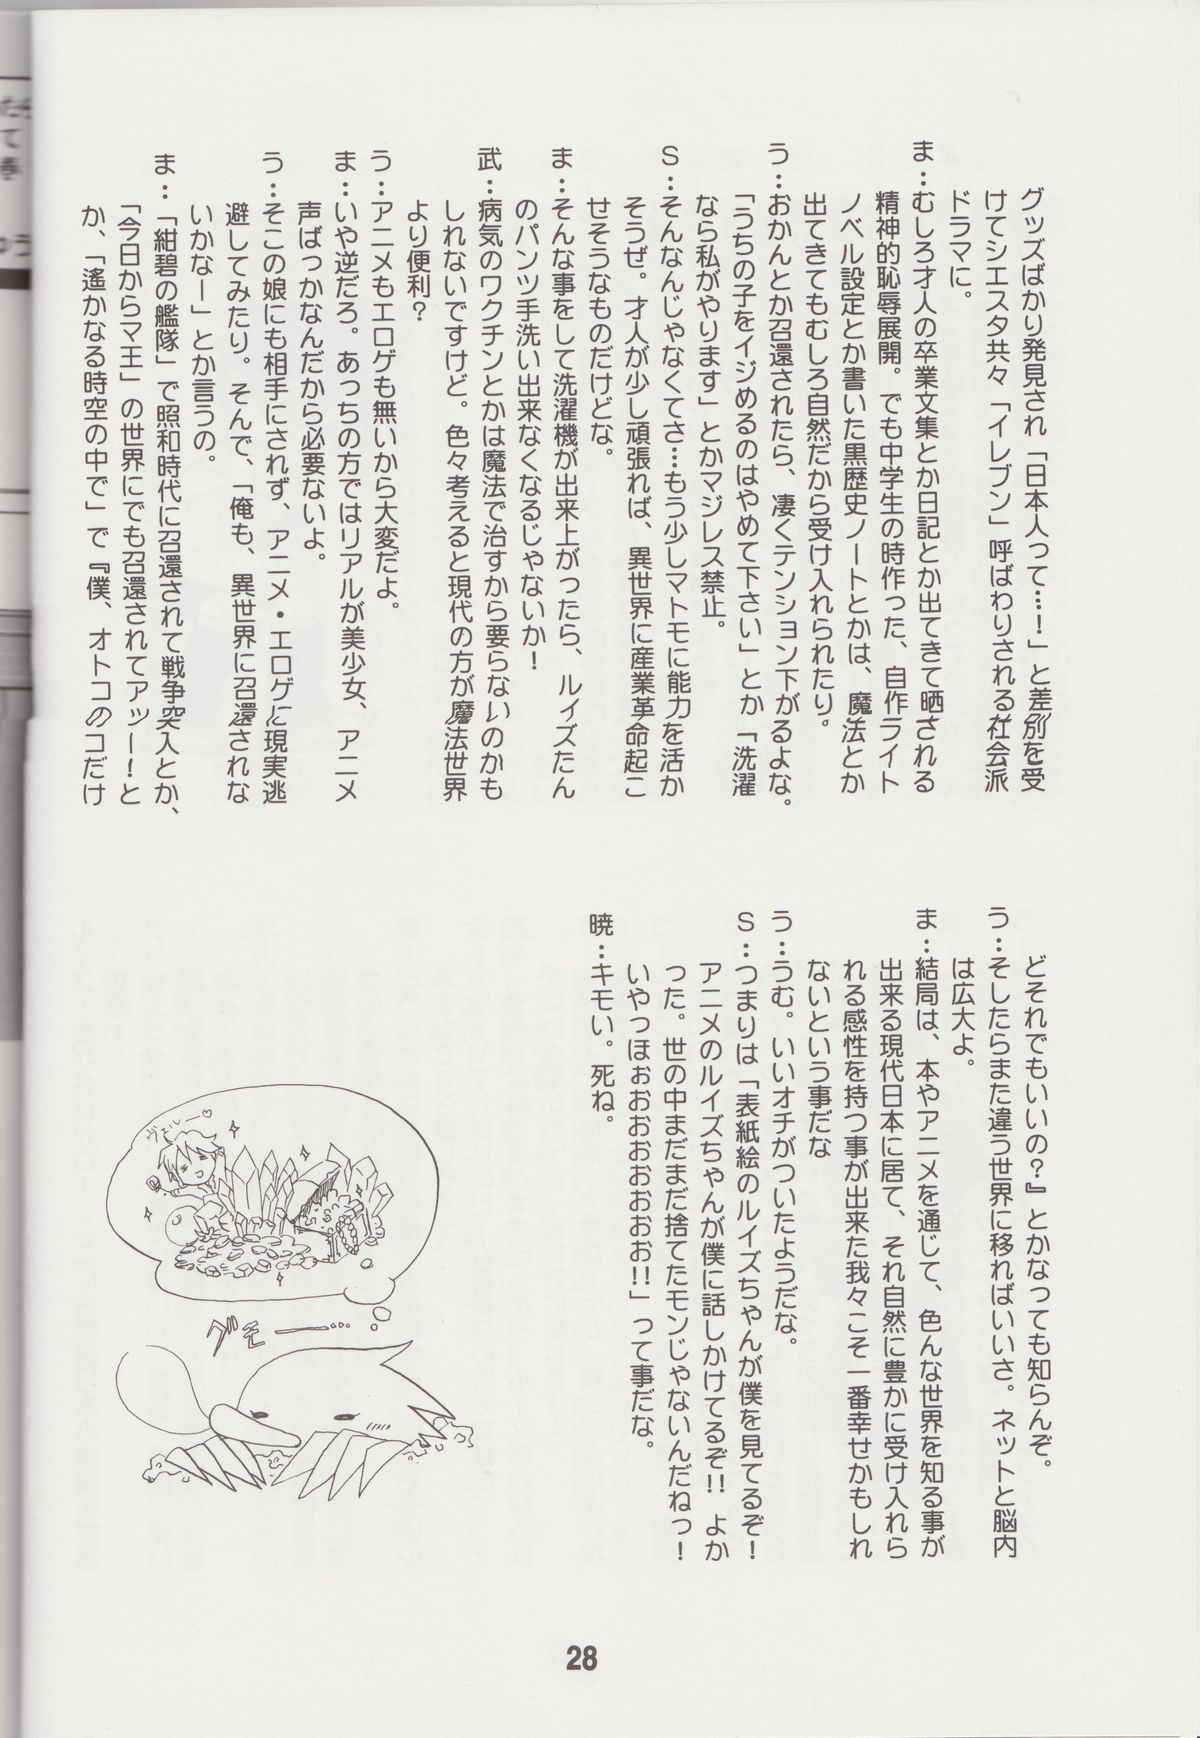 グッズばかり発見され「日本人って…！」と差別を受
けてシエスタ共々「イレブン」呼ばわりされる社会派
ドラマに。
ま：むしろ才人の卒業文集とか日記とか出てきて晒される
精神的恥辱展開。でも中学生の時作った、自作ライト
ノベル設定とか書いた黒歴史ノートとかは、魔法とか
出てきてもむしろ自然だから受け入れられたり。
う：おかんとか召還されたら、凄くテンション下がるよな。
「うちの子をイジめるのはやめて下さい」とか「洗濯
なら私がやります」とかマジレス禁止。
Ｓ：そんなんじゃなくてさ…もう少しマトモに能力を活か
そうぜ。才人が少し頑張れば、異世界に産業革命起こ
せそうなものだけどな。
ま：そんな事をして洗濯機が出来上がったら、ルイズたん
のパンツ手洗い出来なくなるじゃないか！
武：病気のワクチンとかは魔法で治すから要らないのかも
しれないですけど。色々考えると現代の方が魔法世界
より便利？
う：アニメもエロゲも無いから大変だよ。
ま：いや逆だろ。あっちの方ではリアルが美少女、アニメ
声ばっかなんだから必要ないよ。
う：そこの娘にも相手にされず、アニメ・エロゲに現実逃
避してみたり。そんで、「俺も、異世界に召還されな
いかなー」とか言うの。
ま：「紺碧の艦隊」で照和時代に召還されて戦争突入とか、
「今日からマ王」の世界にでも召還されてアッー！と
か、「遙かなる時空の中で」で『僕、オトコのコだけ
どそれでもいいの？』とかなっても知らんぞ。
う：そしたらまた違う世界に移ればいいさ。ネットと脳内
は広大よ。
ま：結局は、本やアニメを通じて、色んな世界を知る事が
出来る現代日本に居て、それ自然に豊かに受け入れら
れる感性を持つ事が出来た我々こそ一番幸せかもしれ
ないという事だな
う：うむ。いいオチがついたようだな。
Ｓ：つまりは「表紙絵のルイズちゃんが僕を見てるぞ！
アニメのルイズちゃんが僕に話しかけてるぞ!! よか
った。世の中まだまだ捨てたモンじゃないんだねっ！
いやっほぉおおおおおおお!!」って事だな。
暁：キモい。死ね。
ヴェルー♡
グモー――…
28